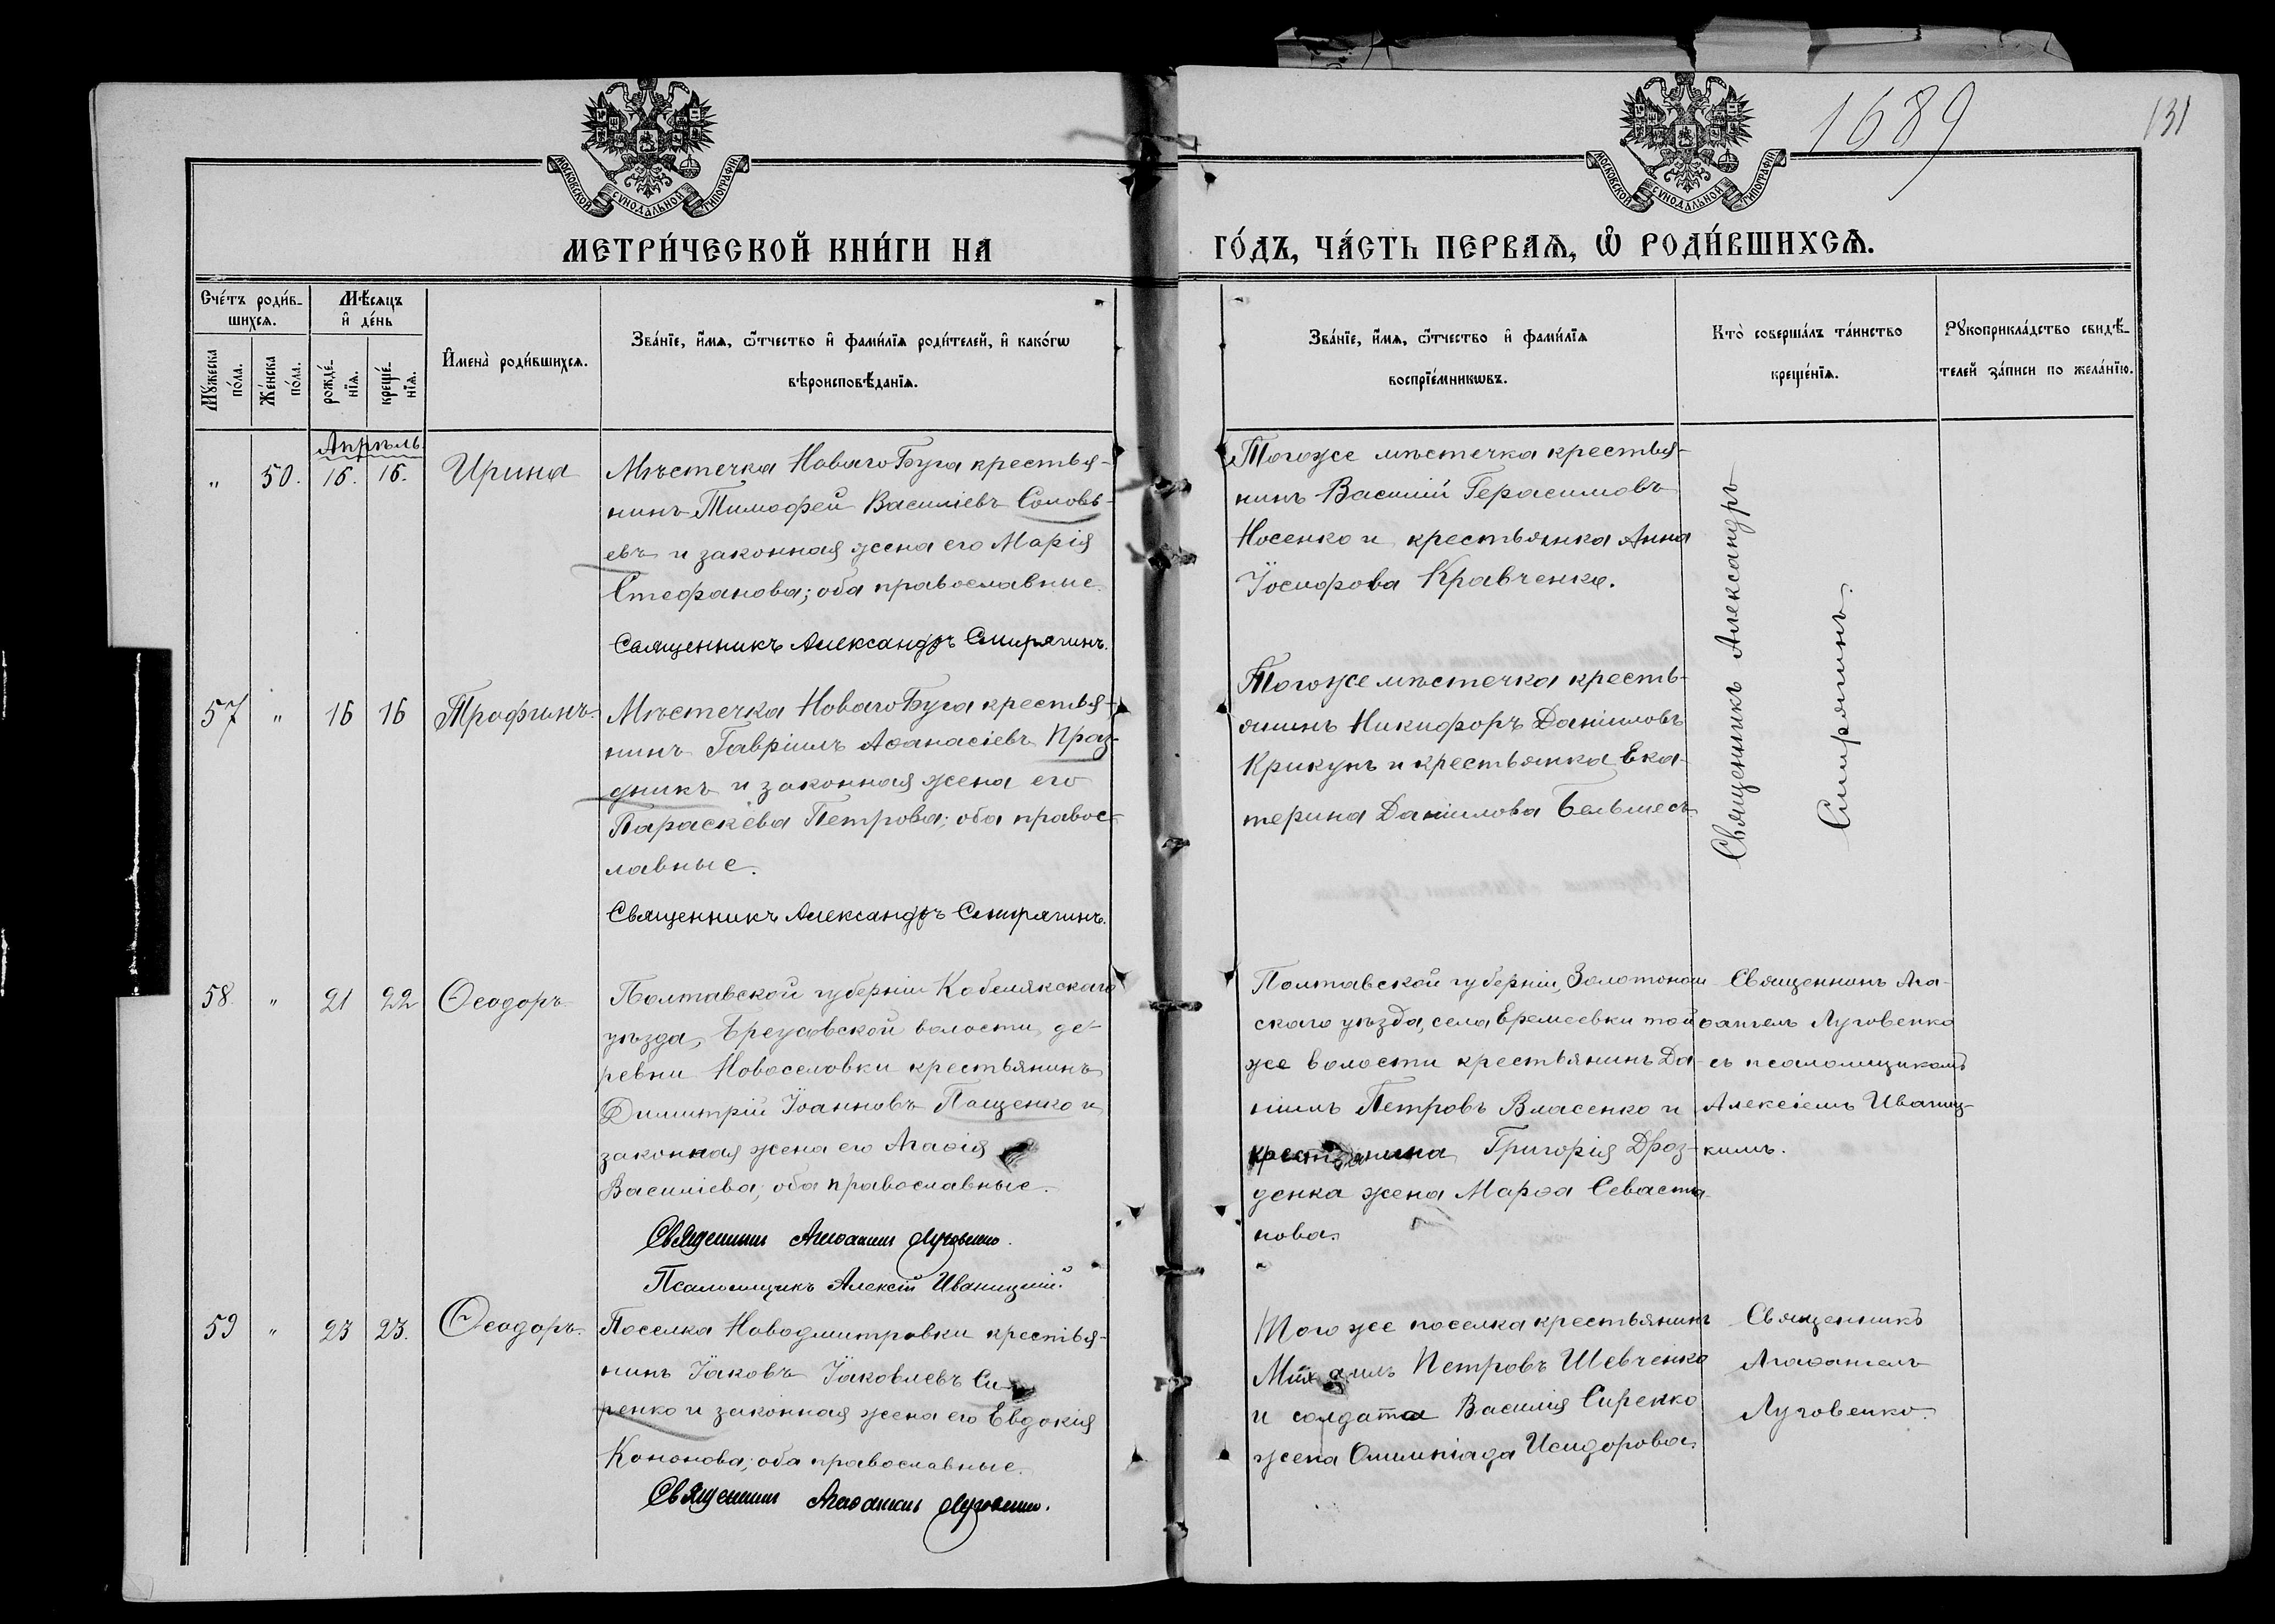 1689
131
МОСКОВСКОЙ СѴНОДАЛЬНОЙ ТИПОГРАФІИ
МОСКОВСКОЙ СѴНОДАЛЬНОЙ ТИПОГРАФІИ
МЕТРИ́ЧЕСКОЙ КНИ́ГИ НА
ГО́ДЪ, ЧА́СТЬ ПЕРВАѦ, Ѽ РОДИ́ВШИХСѦ.
Сче́тъ роди́в-
шихсѧ.
Мꙋ́жеска по́ла.
Же́нска по́ла.
Мѣ́сѧцъ
и҆ де́нь
рожде́-
нїѧ.
креще́-
нїѧ.
И҆мена̀ роди́вшихсѧ.
Зва́нїе, и҆́мѧ, ѻ҆́тчество и҆ фами́лїѧ роди́телей, и҆ како́гѡ
вѣроисповѣ́данїѧ.
Зва́нїе, и҆́мѧ, ѻ҆́тчество и҆ фами́лїѧ
воспрїе́мникѡвъ.
Кто̀ соверша́лъ та́инство
креще́нїѧ.
Рꙋкоприкла́дство свидѣ́-
телей за́писи по жела́нїю.
Апрѣль
" 50. 16. 16. Ирина
Мѣстечка Новаго Буга крестья-
нинъ Тимофей Василіевъ Соловь-
евъ и законная жена его Марія
Стефанова; оба православные.
Священникъ Александръ Смирягинъ.
Тогоже мѣстечка крестья-
нинъ Василій Герасимовъ
Носенко и крестьянка Анна
Іосифова Кравченко.
Священникъ Александръ
Смирягинъ.
57 " 16 16 Трофимъ.
Мѣстечка Новаго Буга крестья-
нинъ Гавріилъ Аѳанасіевъ Праз-
дникъ и законная жена его
Параскева Петрова; оба правос-
лавные.
Священникъ Александръ Смирягинъ.
Тогоже мѣстечка кресть-
янинъ Никифоръ Даніиловъ
Крикунъ и крестьянка Ека-
терина Даніилова Бельмесъ
58 " 21 22 Ѳеодоръ
Полтавской губерніи Кобелякскаго
уѣзда, Бреусовской волости, де-
ревни Новоселовки крестьянинъ
Димитрій Іоанновъ Пащенко и
законная жена его Агаѳія
Василіева; оба православные.
Священникъ Агаѳангелъ Луговенко.
Псаломщикъ Алексій Иваницкій.
Полтавской губерніи, Золотонош
скаго уѣзда, села Еремеевки той
же волости крестьянинъ Да-
ніилъ Петровъ Власенко и
крестьянина Григорія Дроз-
денка жена Марѳа Севастья
нова.
Священникъ Ага-
ѳангелъ Луговенко
съ псаломщикомъ
Алексіемъ Иваниц-
кимъ.
59 " 23 23. Ѳеодоръ.
Поселка Новодмитровки крестья-
нинъ Іаковъ Іаковлевъ Си-
ренко и законная жена его Евдокія
Кононова; оба православные.
Священникъ Агаѳангелъ Луговенко.
Того же поселка крестьянинъ
Михаилъ Петровъ Шевченко
и солдата Василія Сиренко
жена Олимпіада Исидорова.
Священникъ
Агаѳангелъ
Луговенко.